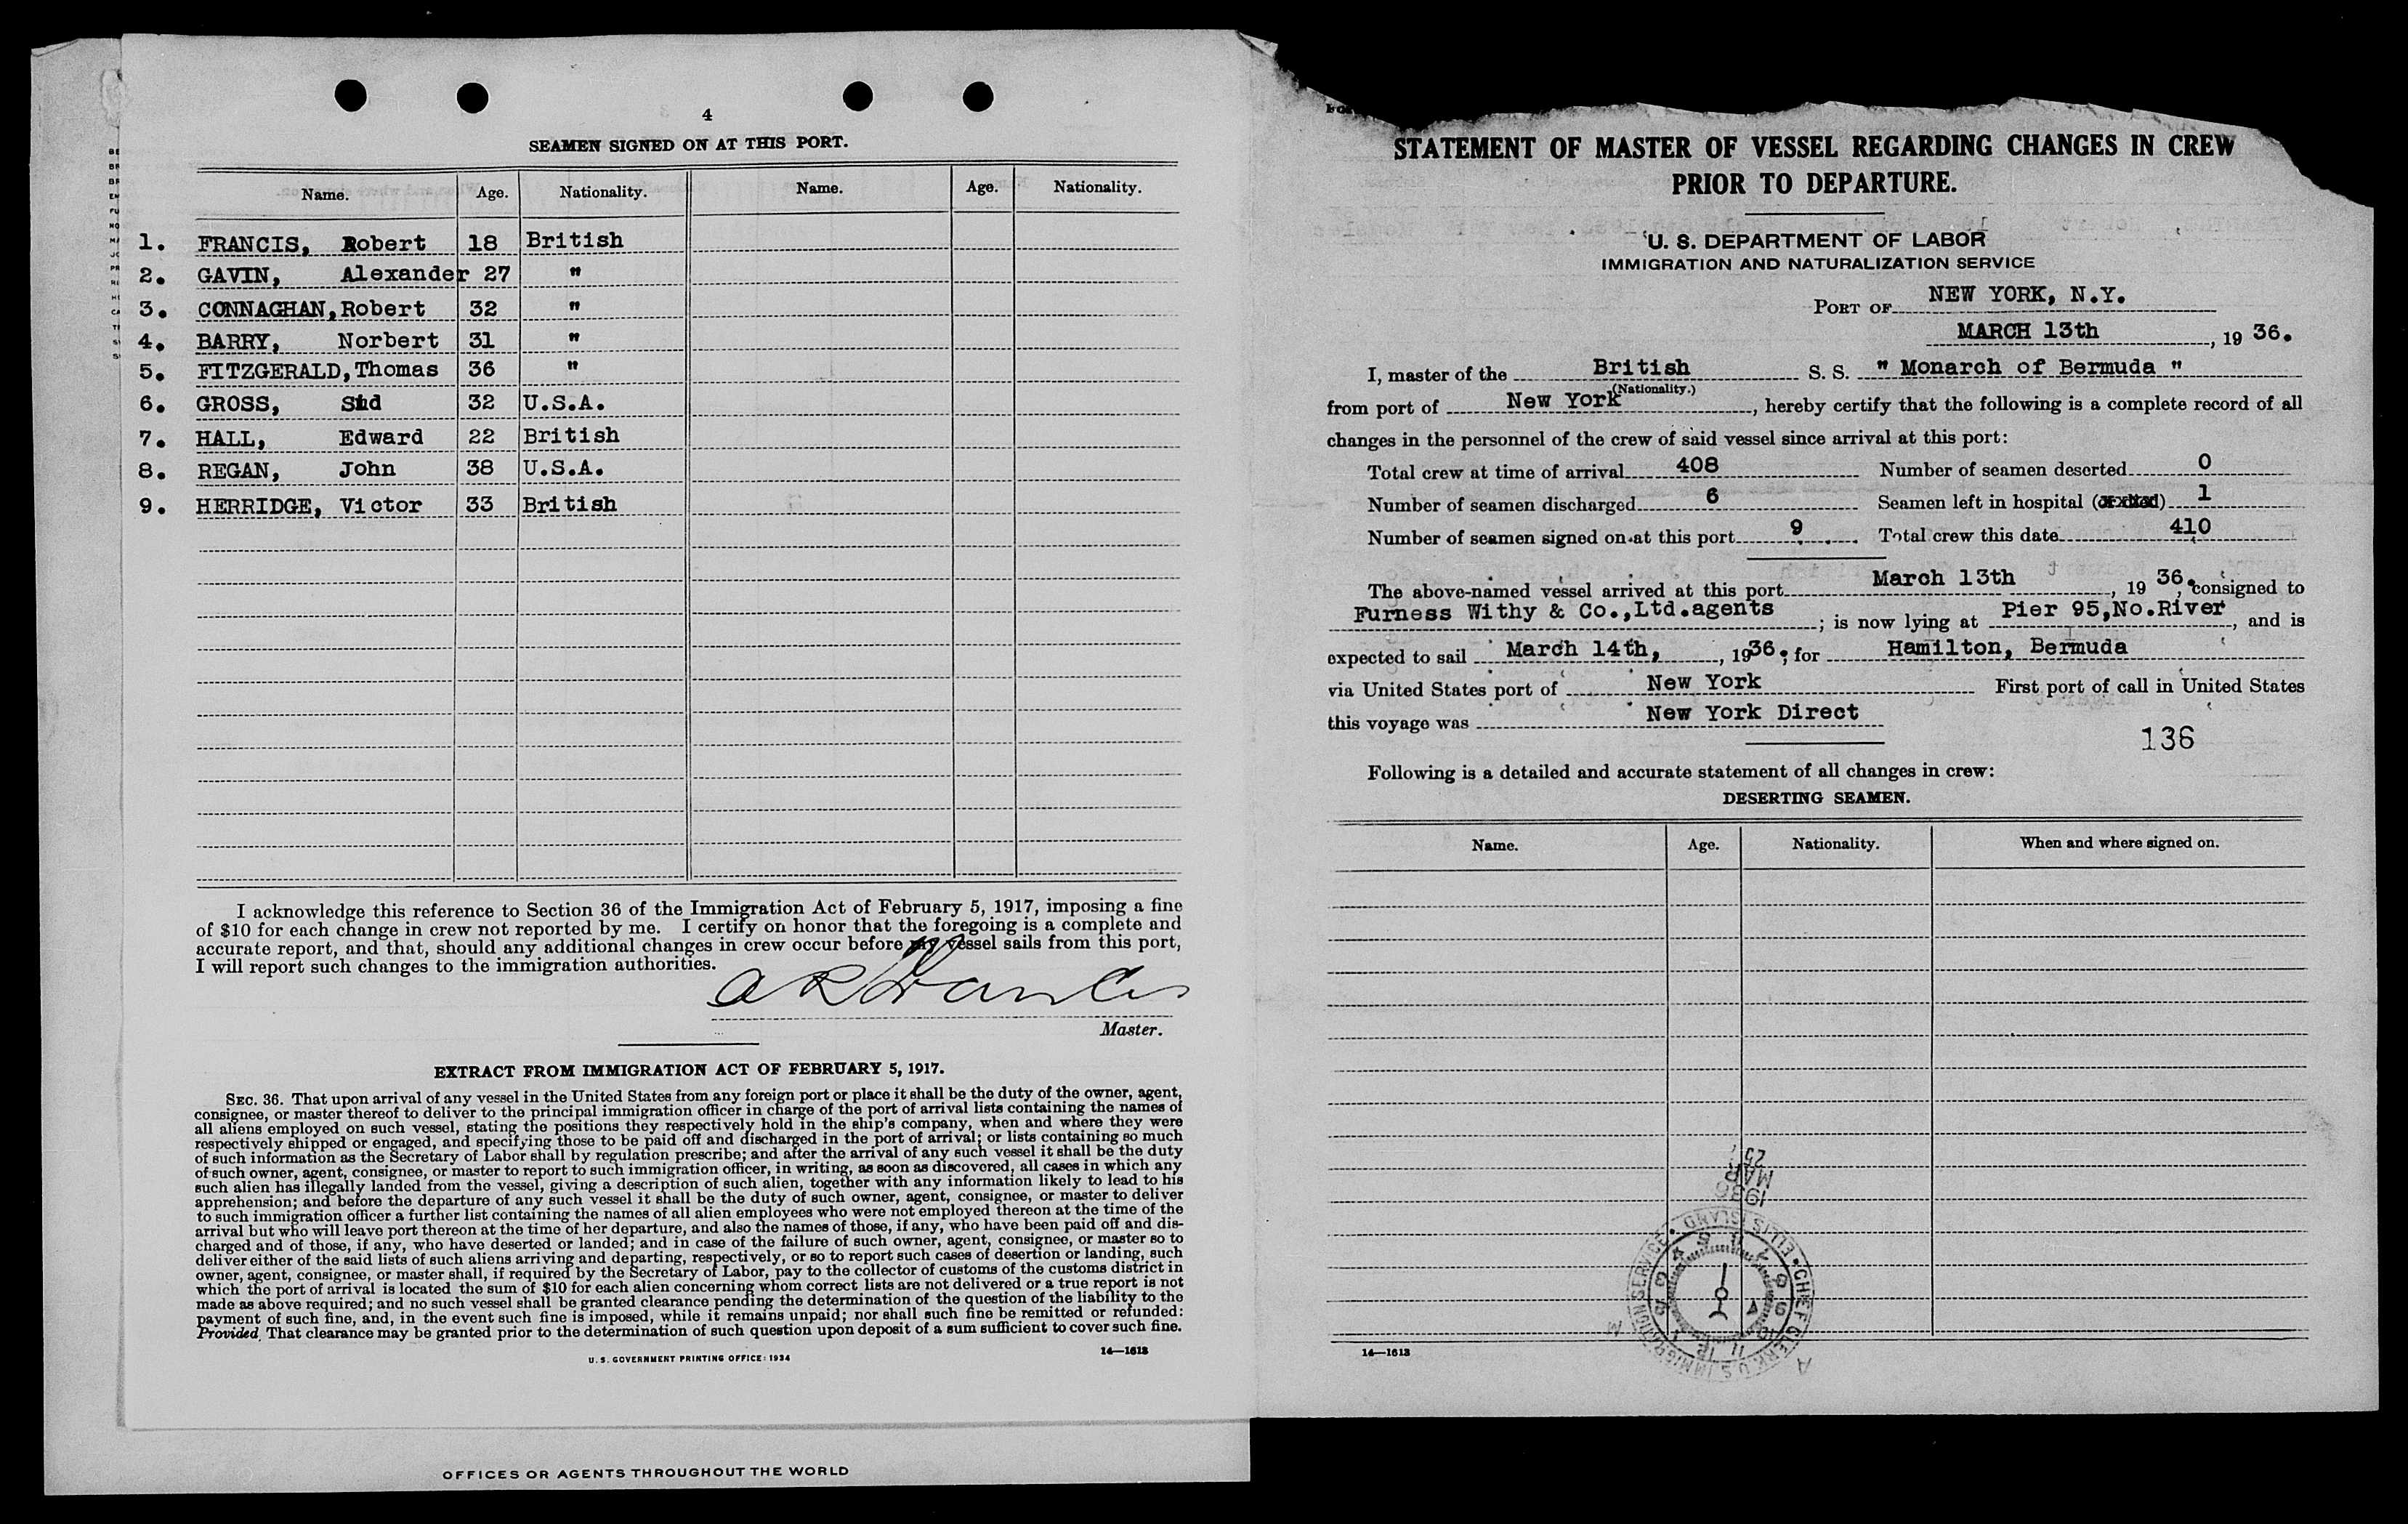 4
SEAMEN SIGNED ON AT THIS PORT.
Name. Age. Nationality. Name. Age. Nationality.
1. FRANCIS, Robert 18 British
2. GAVIN, Alexander 27 "
3. CONNAGHAN, Robert 32 "
4. BARRY, Norbert 31 "
5. FITZGERALD, Thomas 36 "
6. GROSS, Sid 32 U.S.A.
7. HALL, Edward 22 British
8. REGAN, John 38 U.S.A.
9. HERRIDGE, Victor 33 British
I acknowledge this reference to Section 36 of the Immigration Act of February 5, 1917, imposing a fine
of $10 for each change in crew not reported by me. I certify on honor that the foregoing is a complete and
accurate report, and that, should any additional changes in crew occur before my vessel sails from this port,
I will report such changes to the immigration authorities.
Master.
EXTRACT FROM IMMIGRATION ACT OF FEBRUARY 5, 1917.
SEC. 36. That upon arrival of any vessel in the United States from any foreign port or place it shall be the duty of the owner, agent,
consignee, or master thereof to deliver to the principal immigration officer in charge of the port of arrival lists containing the names of
all aliens employed on such vessel, stating the positions they respectively hold in the ship's company, when and where they were
respectively shipped or engaged, and specifying those to be paid off and discharged in the port of arrival; or lists containing so much
of such information as the Secretary of Labor shall by regulation prescribe; and after the arrival of any such vessel it shall be the duty
of such owner, agent, consignee, or master to report to such immigration officer, in writing, as soon as discovered, all cases in which any
such alien has illegally landed from the vessel, giving a description of such alien, together with any information likely to lead to his
apprehension; and before the departure of any such vessel it shall be the duty of such owner, agent, consignee, or master to deliver
to such immigration officer a further list containing the names of all alien employees who were not employed thereon at the time of the
arrival but who will leave port thereon at the time of her departure, and also the names of those, if any, who have been paid off and dis-
charged and of those, if any, who have deserted or landed; and in case of the failure of such owner, agent, consignee, or master so to
deliver either of the said lists of such aliens arriving and departing, respectively, or so to report such cases of desertion or landing, such
owner, agent, consignee, or master shall, if required by the Secretary of Labor, pay to the collector of customs of the customs district in
which the port of arrival is located the sum of $10 for each alien concerning whom correct lists are not delivered or a true report is not
made as above required; and no such vessel shall be granted clearance pending the determination of the question of the liability to the
payment of such fine, and, in the event such fine is imposed, while it remains unpaid; nor shall such fine be remitted or refunded:
Provided, That clearance may be granted prior to the determination of such question upon deposit of a sum sufficient to cover such fine.
U. S. GOVERNMENT PRINTING OFFICE: 1934
14—1613
OFFICES OR AGENTS THROUGHOUT THE WORLD
STATEMENT OF MASTER OF VESSEL REGARDING CHANGES IN CREW
PRIOR TO DEPARTURE.
U. S. DEPARTMENT OF LABOR
IMMIGRATION AND NATURALIZATION SERVICE
PORT OF NEW YORK, N.Y.
MARCH 13th, 1936.
I, master of the British S. S. " Monarch of Bermuda "
(Nationality.)
from port of New York, hereby certify that the following is a complete record of all
changes in the personnel of the crew of said vessel since arrival at this port:
Total crew at time of arrival 408 Number of seamen deserted 0
Number of seamen discharged 6 Seamen left in hospital (or died) 1
Number of seamen signed on at this port 9 Total crew this date 410
The above-named vessel arrived at this port March 13th, 1936., consigned to
Furness Withy & Co.,Ltd.agents; is now lying at Pier 95,No.River, and is
expected to sail March 14th,, 1936.; for Hamilton, Bermuda
via United States port of New York First port of call in United States
this voyage was New York Direct
136
Following is a detailed and accurate statement of all changes in crew:
DESERTING SEAMEN.
Name. Age. Nationality. When and where signed on.
1936
MAR
25
CHIEF CLERK U.S. IMMIGRATION SERVICE • ELLIS ISLAND •
14—1613